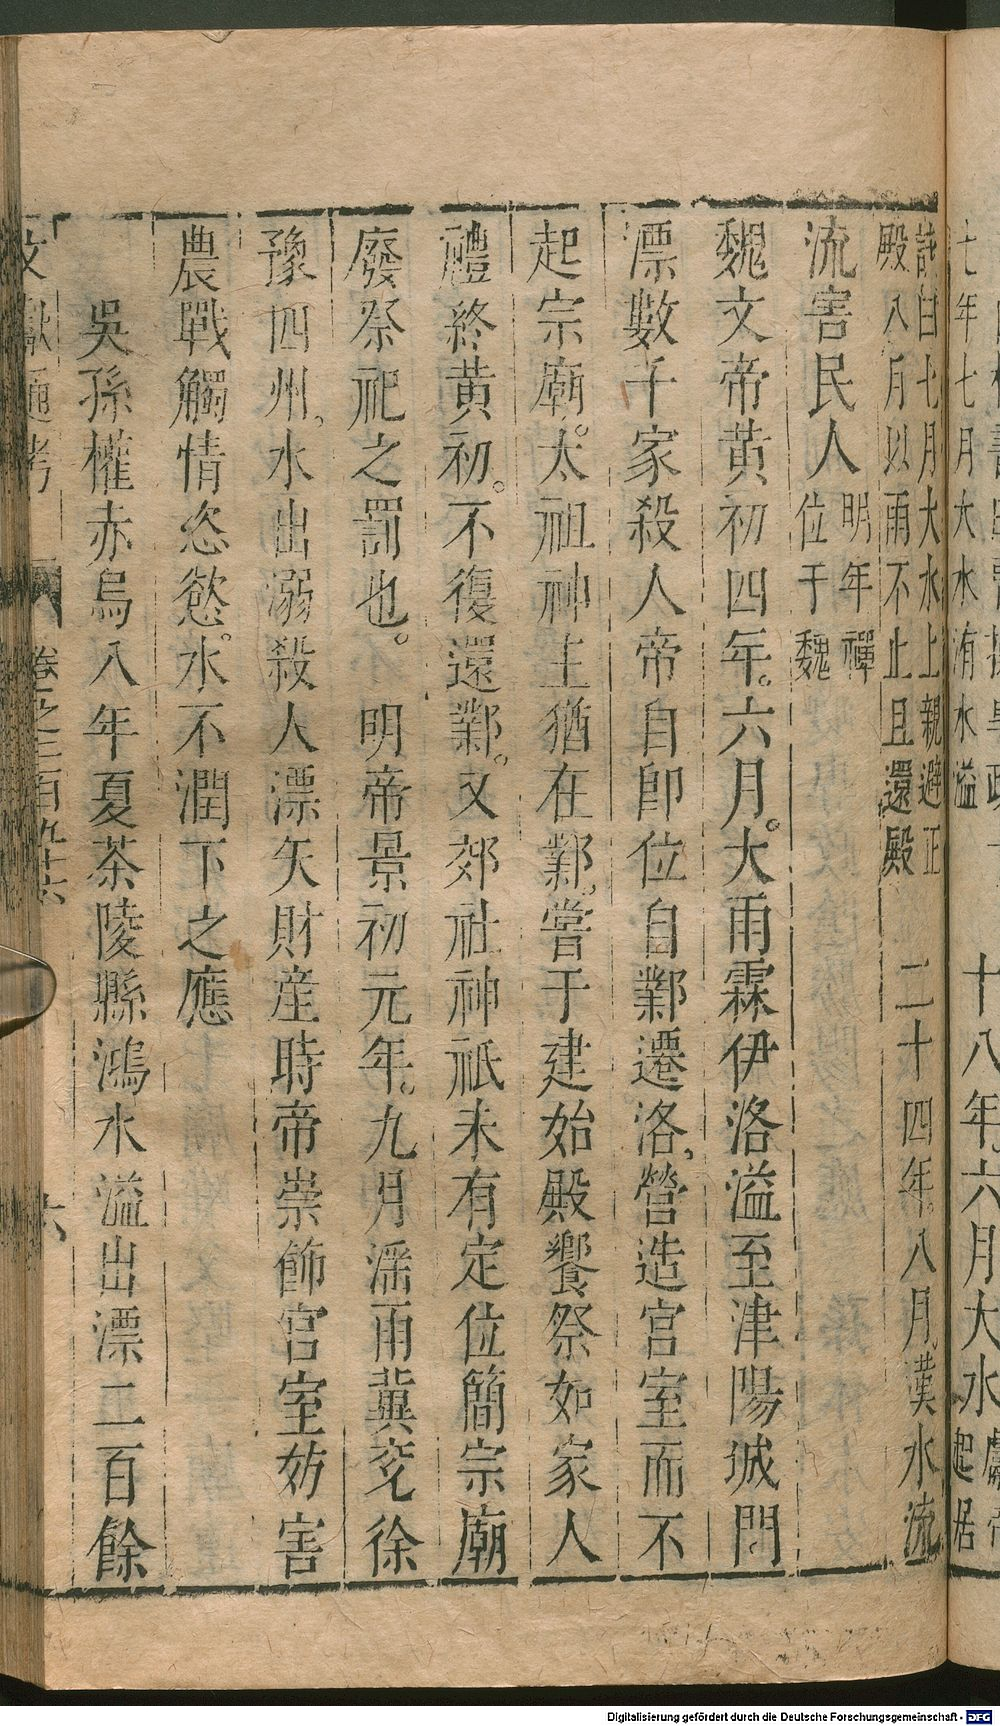 七年七月大水洧水溢
十八年。六月大水
獻帝
起居
註曰七月大水上親避正
殿八月以雨不止且還殿
二十四年。八月。漢水流
流害民人
明年禪
位于魏
魏文帝黃初四年。六月。大雨霖伊洛溢至津陽城門
漂數千家殺人帝自卽位自鄴遷洛,營造宮室而不
起宗廟。太祖神主猶在鄴。嘗于建始殿饗祭如家人
禮終黃初。不復還鄴。又郊社神祇未有定位簡宗廟
廢祭祀之罰也。 明帝景初元年。九月淫雨冀兗徐
豫四州,水出溺殺人漂失財産時帝崇飾宮室妨害
農戰觸情恣慾。水不潤下之應
吳孫權赤烏八年夏茶陵縣鴻水溢出漂二百餘
文獻通考 卷之二百九十六 六
Digitalisierung gefördert durch die Deutsche Forschungsgemeinschaft - DFG